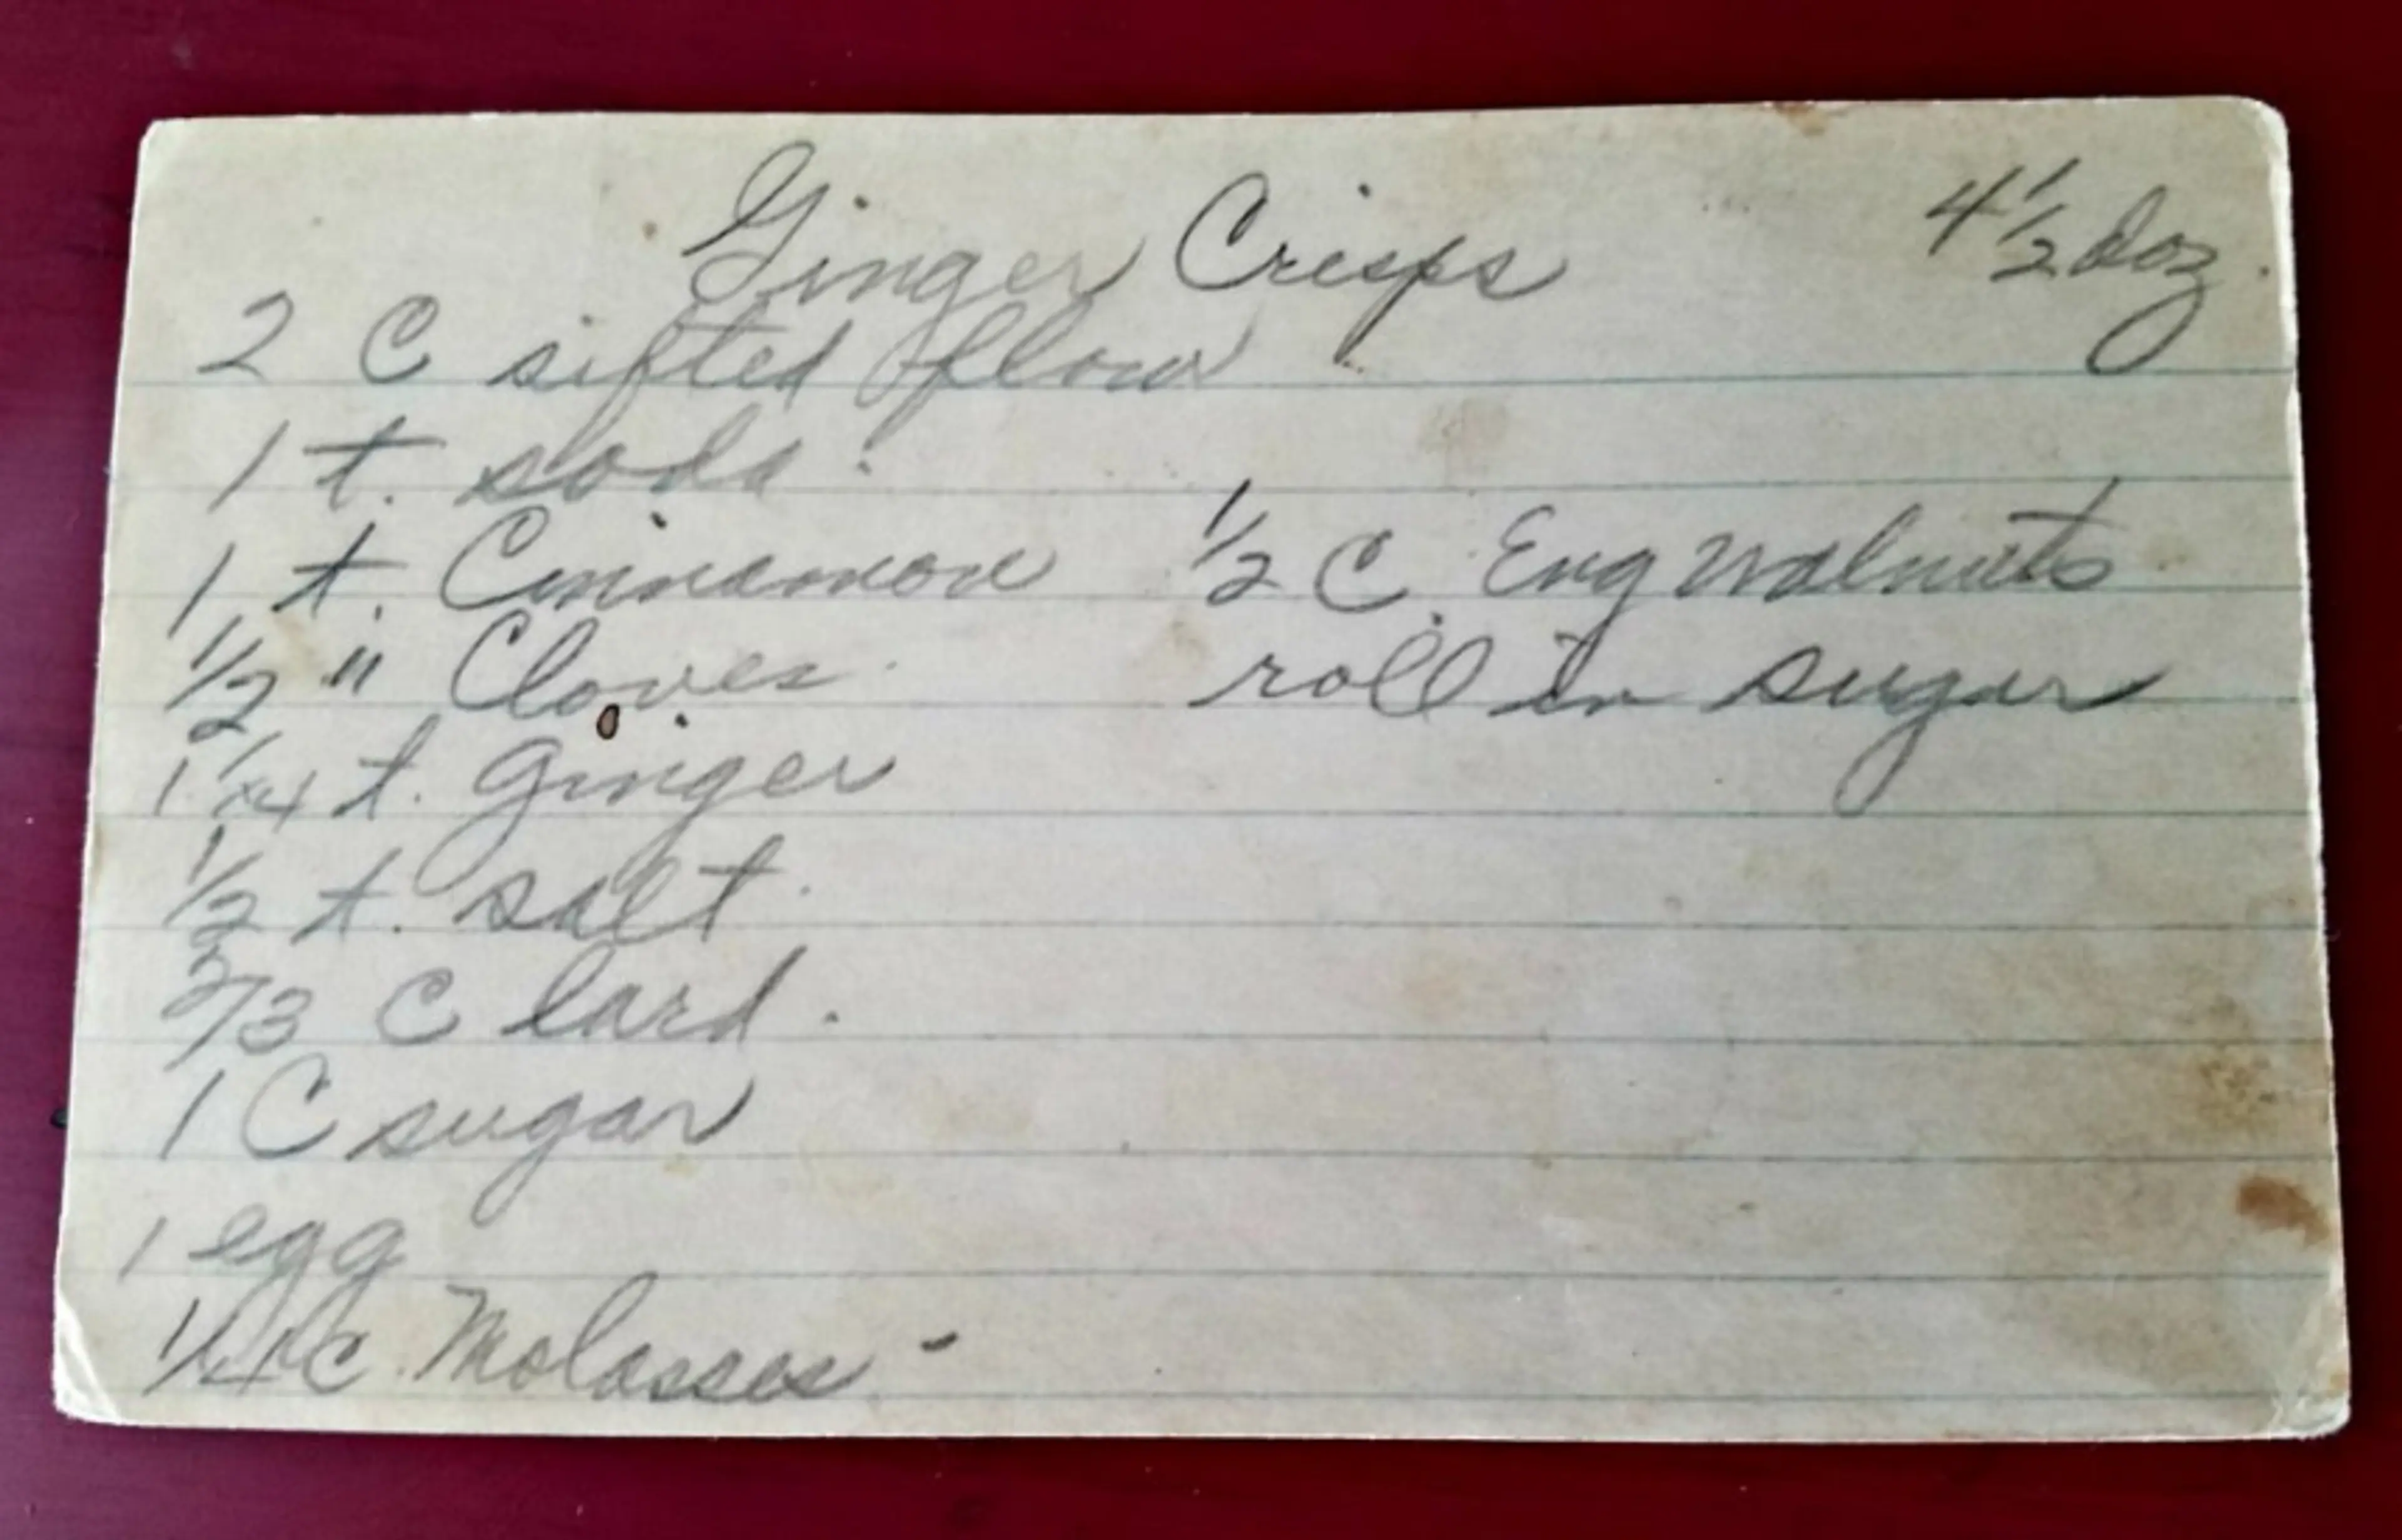 Ginger Crisps 4 1/2 doz.
2 C sifted flour
1 t. soda.
1 t. Cinnamon
1/2 " Cloves.
1 1/4 t. ginger
1/2 t. salt.
2/3 C lard.
1 C sugar
1 egg
1/4 c. Molasses -
1/2 C. Eng Walnuts
roll in sugar